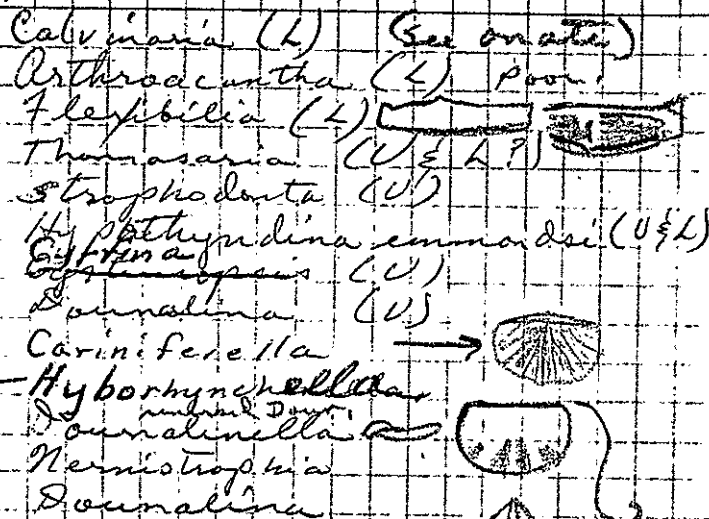 Calvinaria (L) (See on ate)
Arthroacantha (L) poor.
Flexibilia (L)
Thomasaria (U & L?)
Strophodonta (U)
Hypothyridina emmonsi (U & L)
Cyrtina (U)
Dounalina (U)
Cariniferella
Hyborhynchella
Dounalinella
Nermistrophia
Dounalina